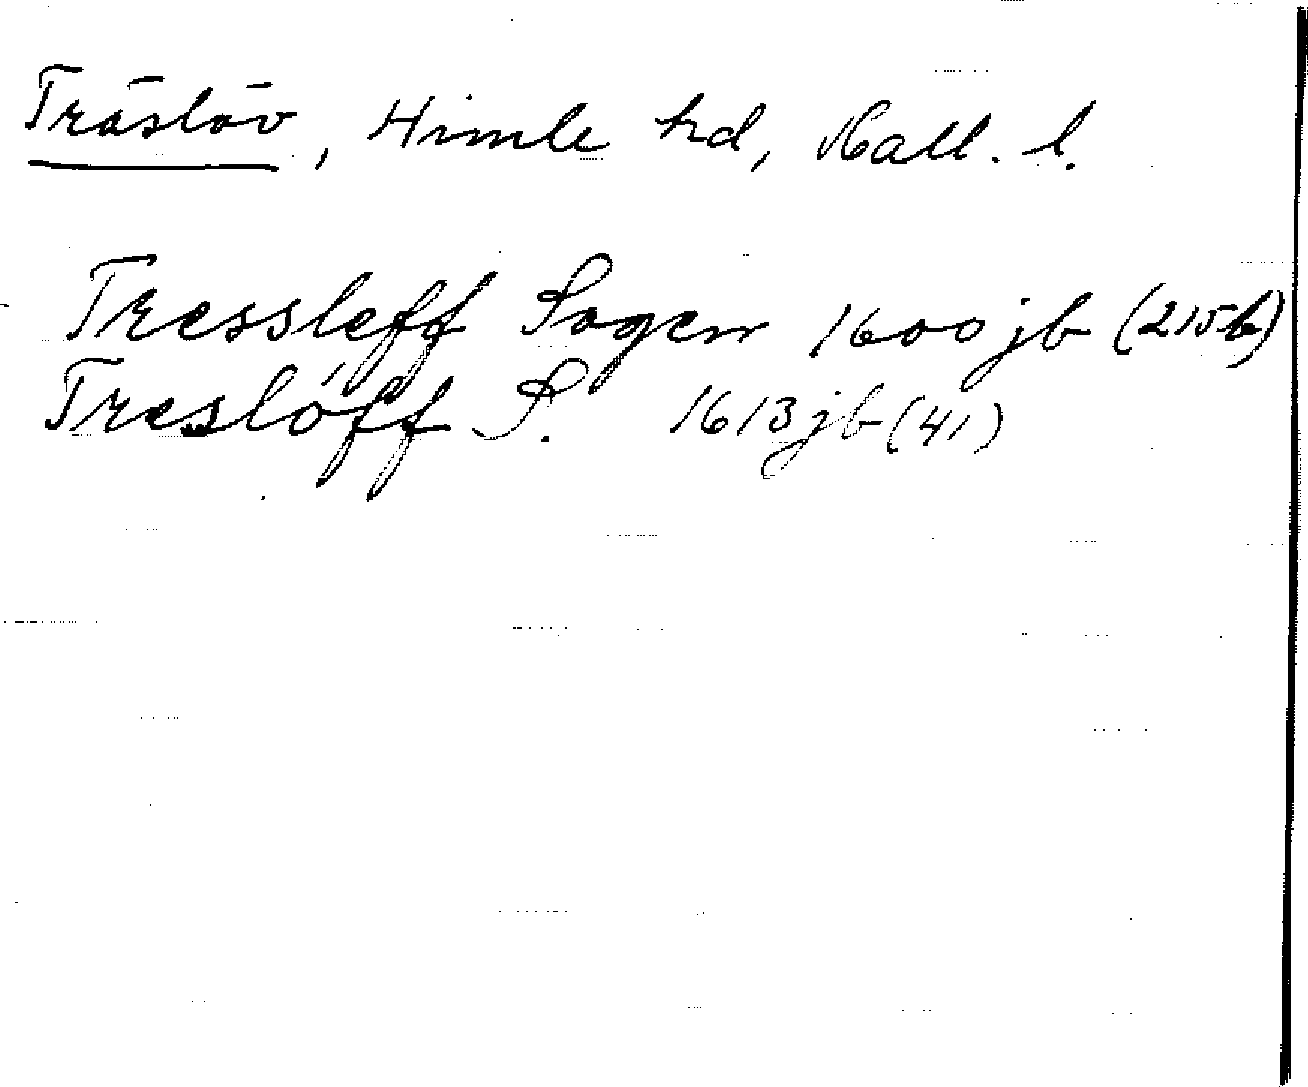 Träslöv, Himle hd, Hall. l.
Tressleff Sogen 1600 jb (215b)
Treslóff S. 1613 jb (41)